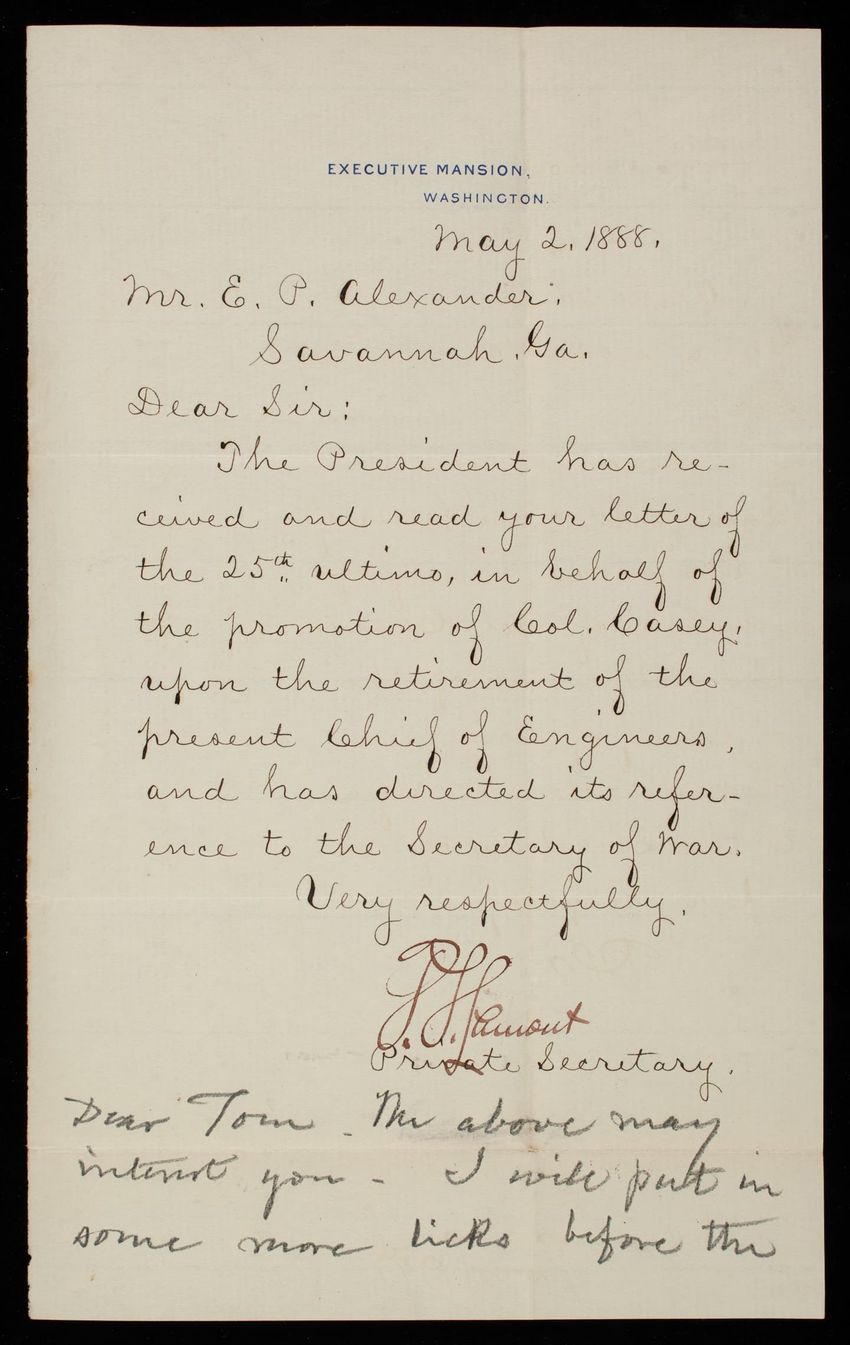 EXECUTIVE MANSION,
WASHINGTON.
May 2, 1888.
Mr. E. P. Alexander,
Savannah, Ga.
Dear Sir:
The President has re-
ceived and read your letter of
the 25th ultimo, in behalf of
the promotion of Col. Casey,
upon the retirement of the
present Chief of Engineers,
and has directed its refer-
ence to the Secretary of War.
Very respectfully,
Lamont
Private Secretary.
Dear Tom - The above may
interest you - I will put in
some more licks before the